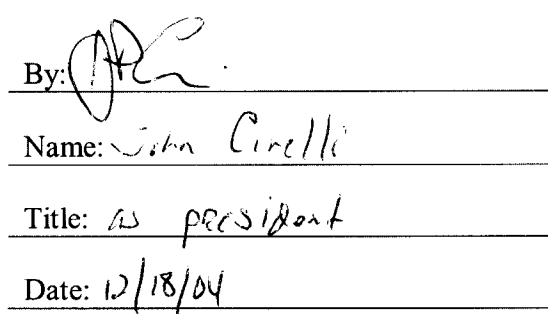 By:
Name: John Cirelli
Title: as president
Date: 12/18/04